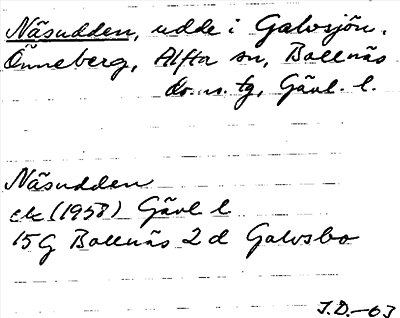 Näsudden, udde i Galvsjön.
Önneberg, Alfta sn, Bollnäs
do. o. tg, Gävl. l.
Näsudden
ek (1958) Gävl l
15G Bollnäs 2d Galvsbo
J.D.-63